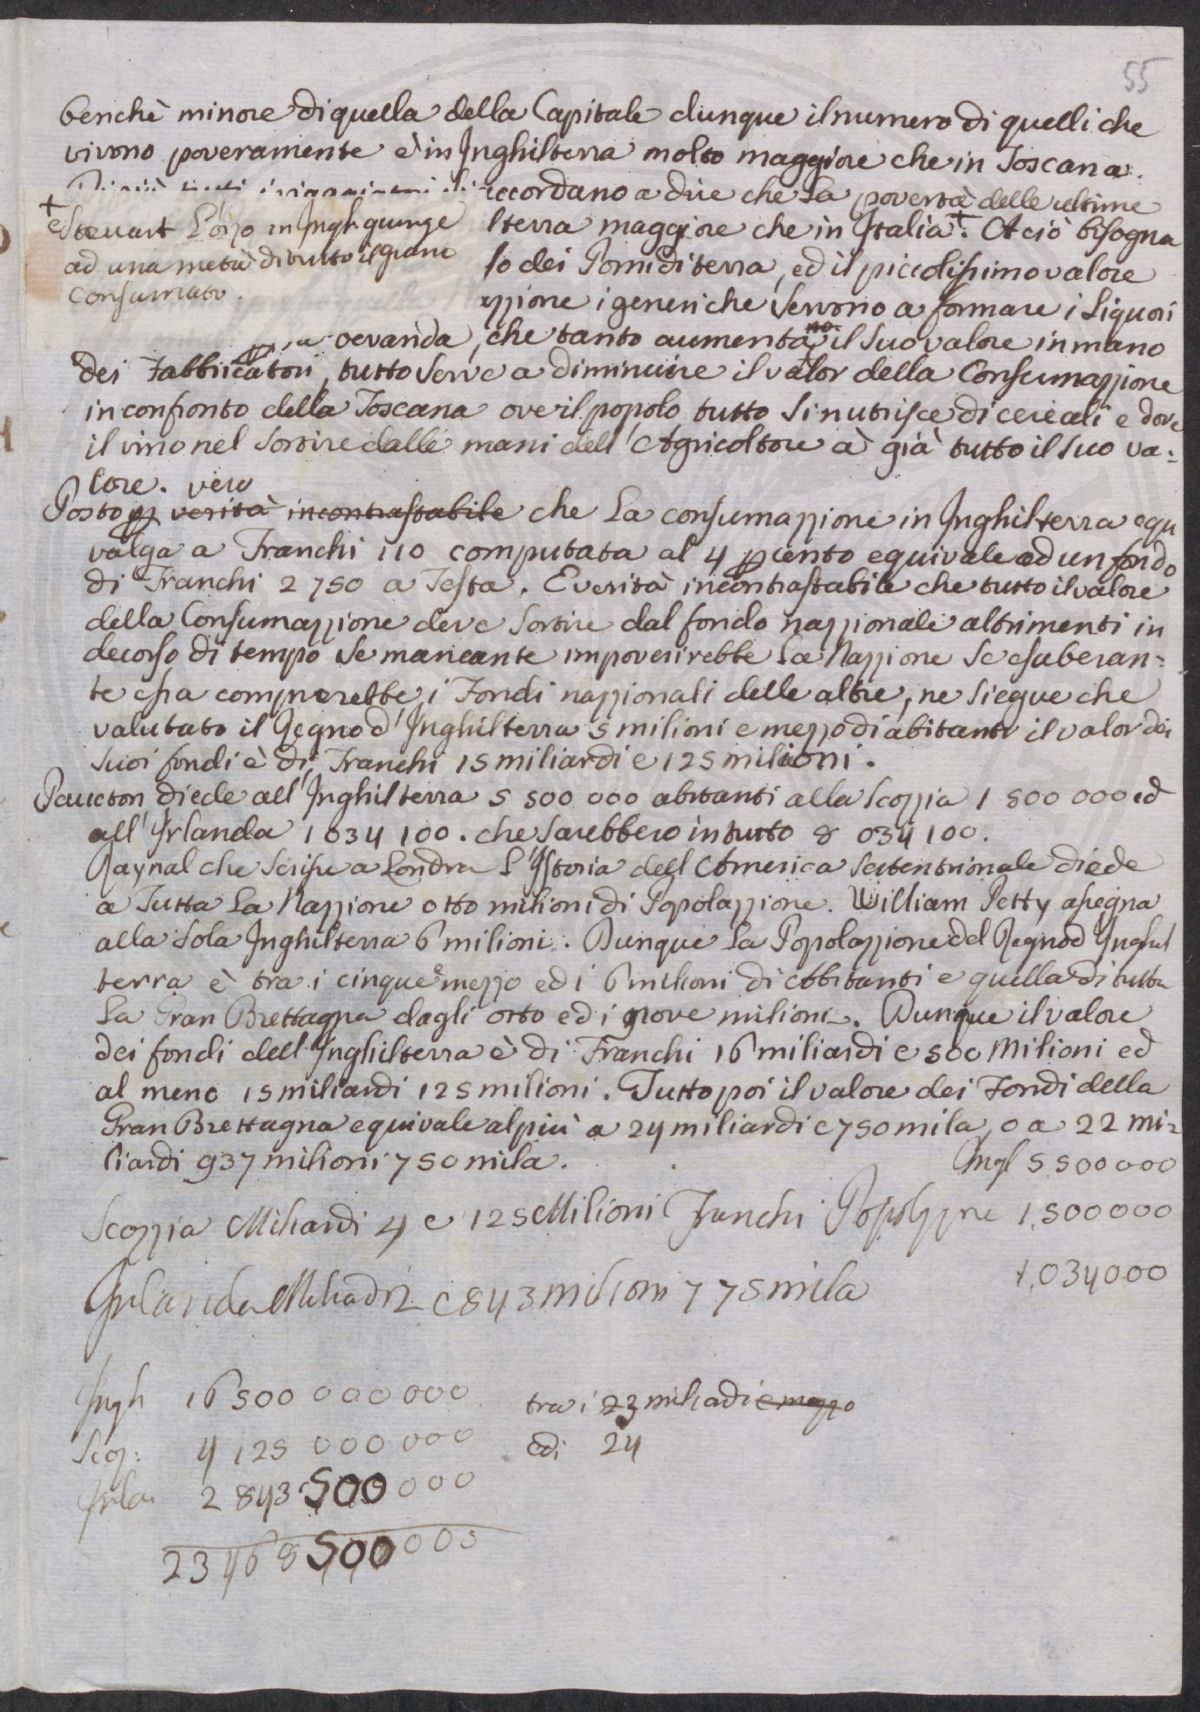 55
benchè minore di quella della Capitale dunque il numero di quelli che
vivono poveramente è in Inghilterra molto maggiore che in Toscana.
accordano a dire che la povertà delle ultime
+ Steuart L'orzo in Ingh. giunge
ad una metà di tutto il grano
consumato.
lterra maggiore che in Italia +. A ciò bisogna
so dei Pomi di terra, ed il piccolissimo valore
zzione i generi che servono a formare i Liquori
bevanda, che tanto aumentano il suo valore in mano
dei Fabbricatori, tutto serve a diminuire il valor della Consumazzione
in confronto della Toscana ove il popolo tutto si nutrisce di cereali e dove
il vino nel sortire dalle mani dell'Agricoltore à già tutto il suo va=
lore. vero
Posto per verità incontrastabile che La consumazzione in Inghilterra equ
valga a Franchi 110 computata al 4 per cento equivale ad un fondo
di Franchi 2 750 a Testa. E verità incontrastabile che tutto il valore
della Consumazzione deve sortire dal fondo nazzionale altrimenti in
decorso di tempo se mancante impoverirebbe La Nazzione se esuberan=
te essa comprerebbe i Fondi nazzionali delle altre, ne siegue che
valutato il Regno d'Inghilterra 5 milioni e mezzo di abitanti il valor dei
suoi fondi è di Franchi 15 miliardi e 125 milioni.
Paucton diede all'Inghilterra 5 500 000 abitanti alla Scozzia 1 500 000 ed
all'Irlanda 1 034 100. che sarebbero in tutto 8 034 100.
Raynal che scrisse a Londra L'Istoria dell'America settentrionale diede
a Tutta La Nazzione otto milioni di Popolazzione. William Petty assegna
alla sola Inghilterra 6 milioni. Dunque La Popolazzione del Regno d'Inghil
terra è tra i cinque e mezzo ed i 6 milioni di Abitanti e quella di tutta
La Gran Brettagna dagli otto ed i nove milioni. Dunque il valore
dei fondi dell'Inghilterra è di Franchi 16 miliardi e 500 Milioni ed
al meno 15 miliardi 125 milioni. Tutto poi il valore dei Fondi della
Gran Brettagna equivale al più a 24 miliardi e 750 mila, o a 22 mi=
liardi 937 milioni 750 mila.
Ingl 5 500000
Scozzia Miliardi 4 e 125 Milioni Franchi Popolzzne 1,500000
1,034000
Irlanda Miliardi 2 e 843 milioni 775 mila
Ingh 16 500 000 000
Scoz: 4 125 000 000
Irla 2 843 500 000
23 468 500 000
tra i 23 miliardi e mezzo
edi 24